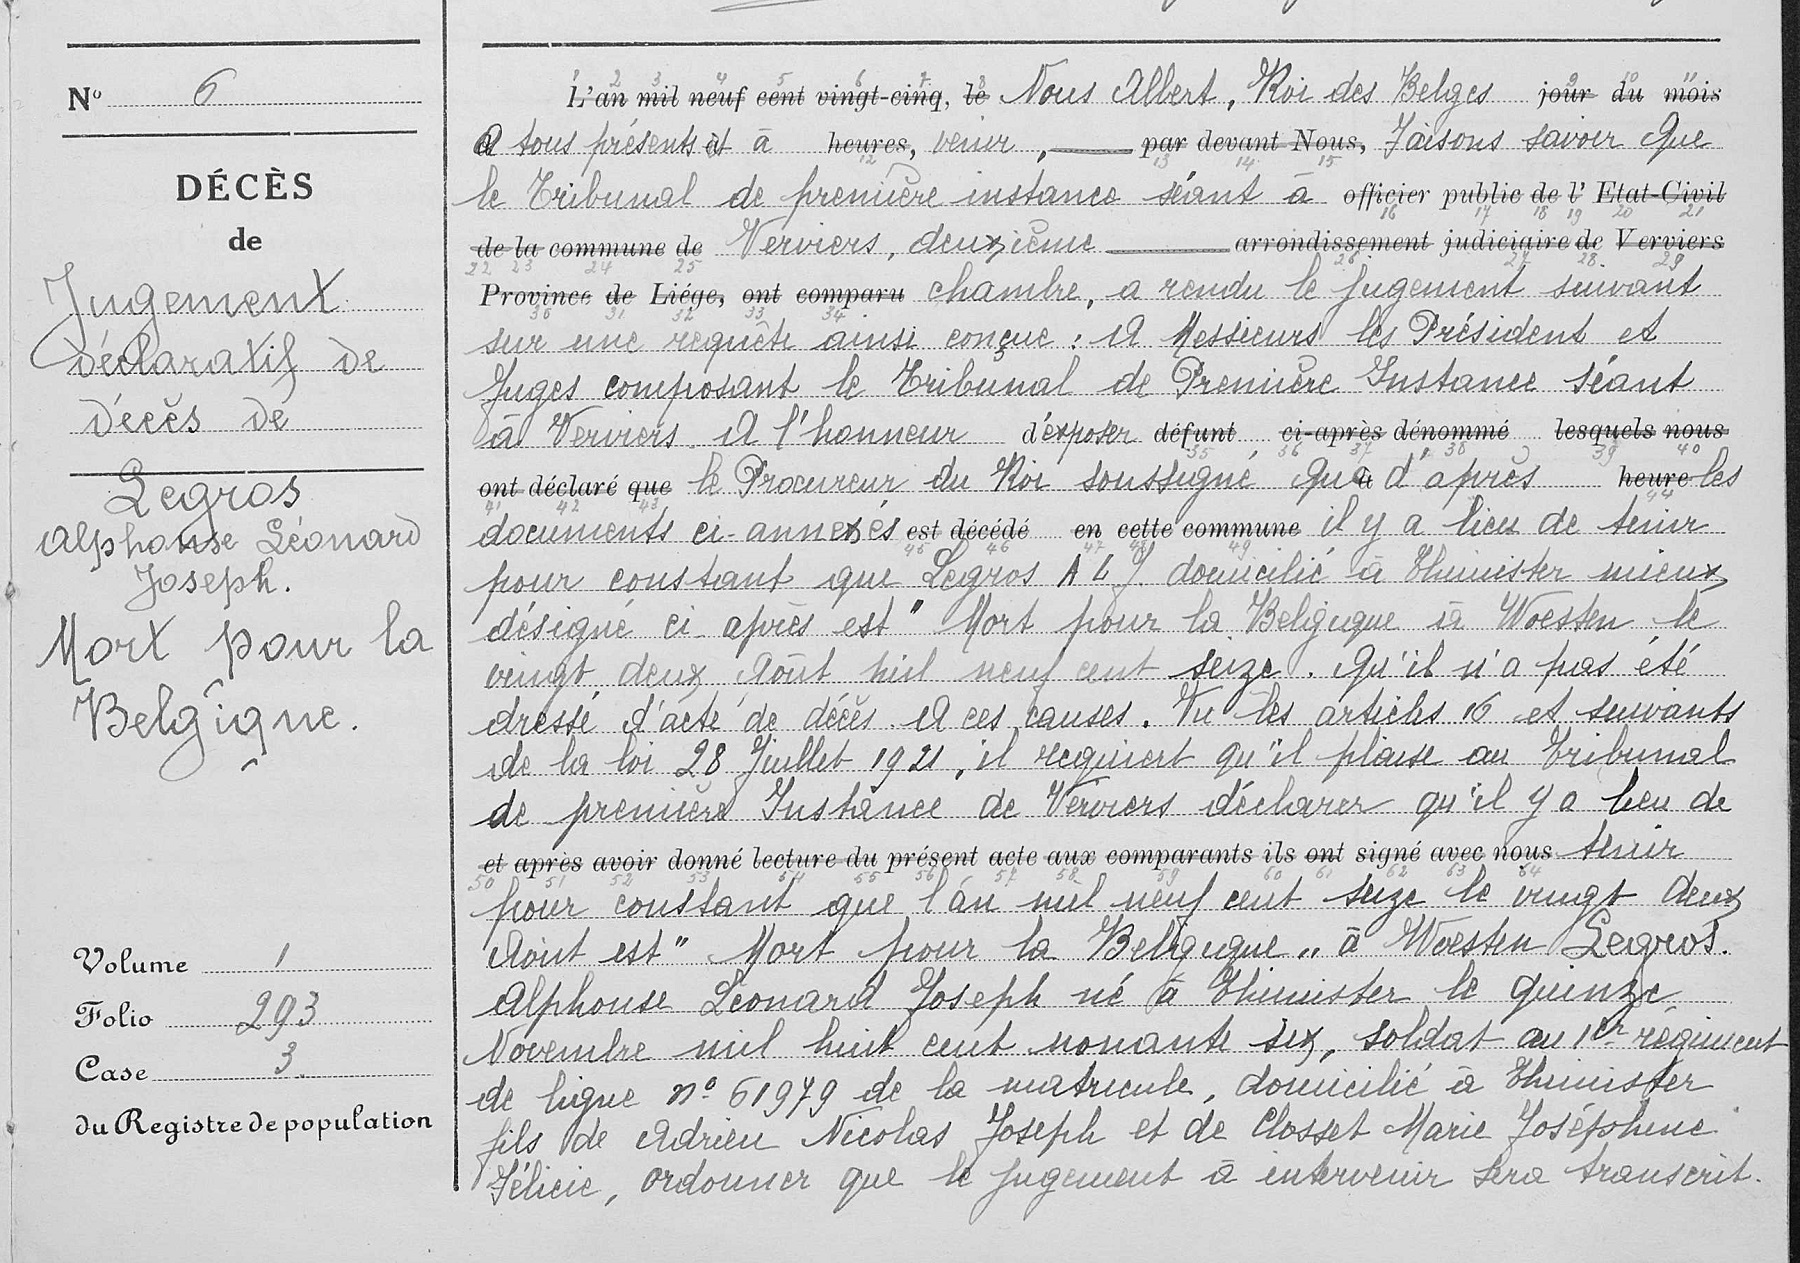 N° 6
DÉCÈS
de
Jugement
déclaratif de
décès de
Legros
Alphonse Léonard
Joseph.
Mort pour la
Belgique.
Volume 1
Folio 293
Case 3.
du Registre de population
L'an mil neuf cent vingt-cinq, le Nous Albert, Roi des Belges jour du mois
A tous présents et à heures, venir, par devant Nous, Faisons savoir que
le Tribunal de première instance séant à officier public de l' Etat-Civil
de la commune de Verviers, deuxième arrondissement judiciaire de Verviers
Province de Liége, ont comparu chambre, a rendu le jugement suivant
sur une requête ainsi conçue : A Messieurs les Président et
Juges composant le Tribunal de Première Instance séant
à Verviers A l'honneur d'exposer défunt ci-après dénommé lesquels nous
ont déclaré que le Procureur du Roi soussigné qu'à d'après heure les
documents ci-annexés est décédé en cette commune il y a lieu de tenir
pour constant que Legros A L J. domicilié à Thimister mieux
désigné ci après est " Mort pour la Belgique à Woesten le
vingt deux Août mil neuf cent seize. Qu'il n'a pas été
dressé d'acte de décès. A ces causes. Vu les articles 16 et suivants
de la loi 28 Juillet 1921, il requiert qu'il plaise au Tribunal
de première Instance de Verviers déclarer qu'il y a lieu de
et après avoir donné lecture du présent acte aux comparants ils ont signé avec nous tenir
pour constant que l'an mil neuf cent seize le vingt deux
Août est " Mort pour la Belgique " à Woesten Legros.
Alphonse Léonard Joseph né à Thimister le quinze
Novembre mil huit cent nonante six, soldat au 1er régiment
de ligne n° 61979 de la matricule, domicilié à Thimister
fils de Adrien Nicolas Joseph et de Closset Marie Joséphine
Félicie, ordonner que le jugement à intervenir sera transcrit.